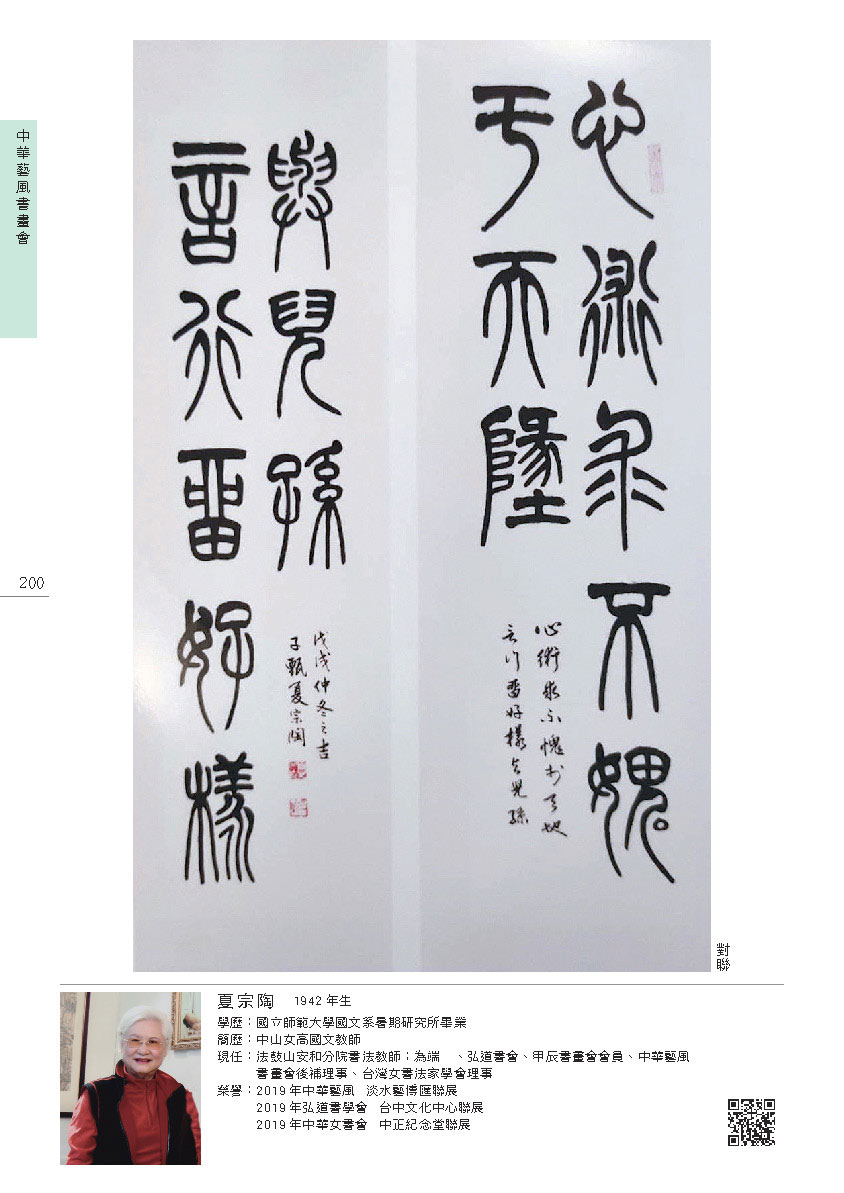 中華藝風書畫會
心術求不愧
于天墬
心術求不愧於天地
言行留好樣與兒孫
與兒孫
言行畱好樣
戊戌仲冬之吉
子甄夏宗陶
對聯
200
夏宗陶 1942 年生
學歷：國立師範大學國文系暑期研究所畢業
簡歷：中山女高國文教師
現任：法鼓山安和分院書法教師；為端 、弘道書會、甲辰書畫會會員、中華藝風
書畫會後補理事、台灣女書法家學會理事
榮譽：2019 年中華藝風 淡水藝博匯聯展
2019 年弘道書學會 台中文化中心聯展
2019 年中華女書會 中正紀念堂聯展